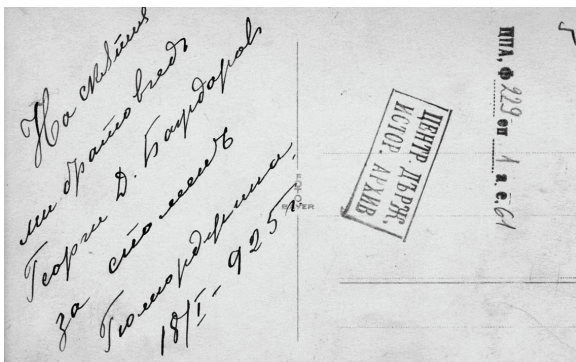 На милия
ми братовчедъ
Георги Д. Бояджиевъ
за споменъ
Гюморджина.
18/I - 925 г.
FOTO
BAYER
ЦЕНТР. ДЪРЖ.
ИСТОР. АРХИВ
ЦПА, Ф 229 оп 1 а.е. 61